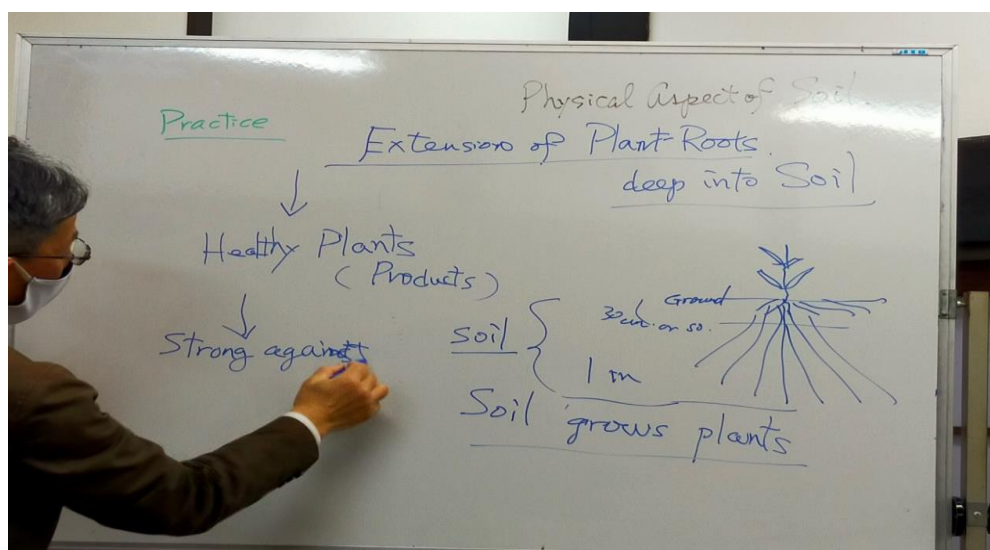 Physical Aspect of Soil.
Practice
Extension of Plant Roots
deep into Soil
Healthy Plants
(Products)
Strong against
soil
Ground
30 cm or so.
1 m
Soil grows plants